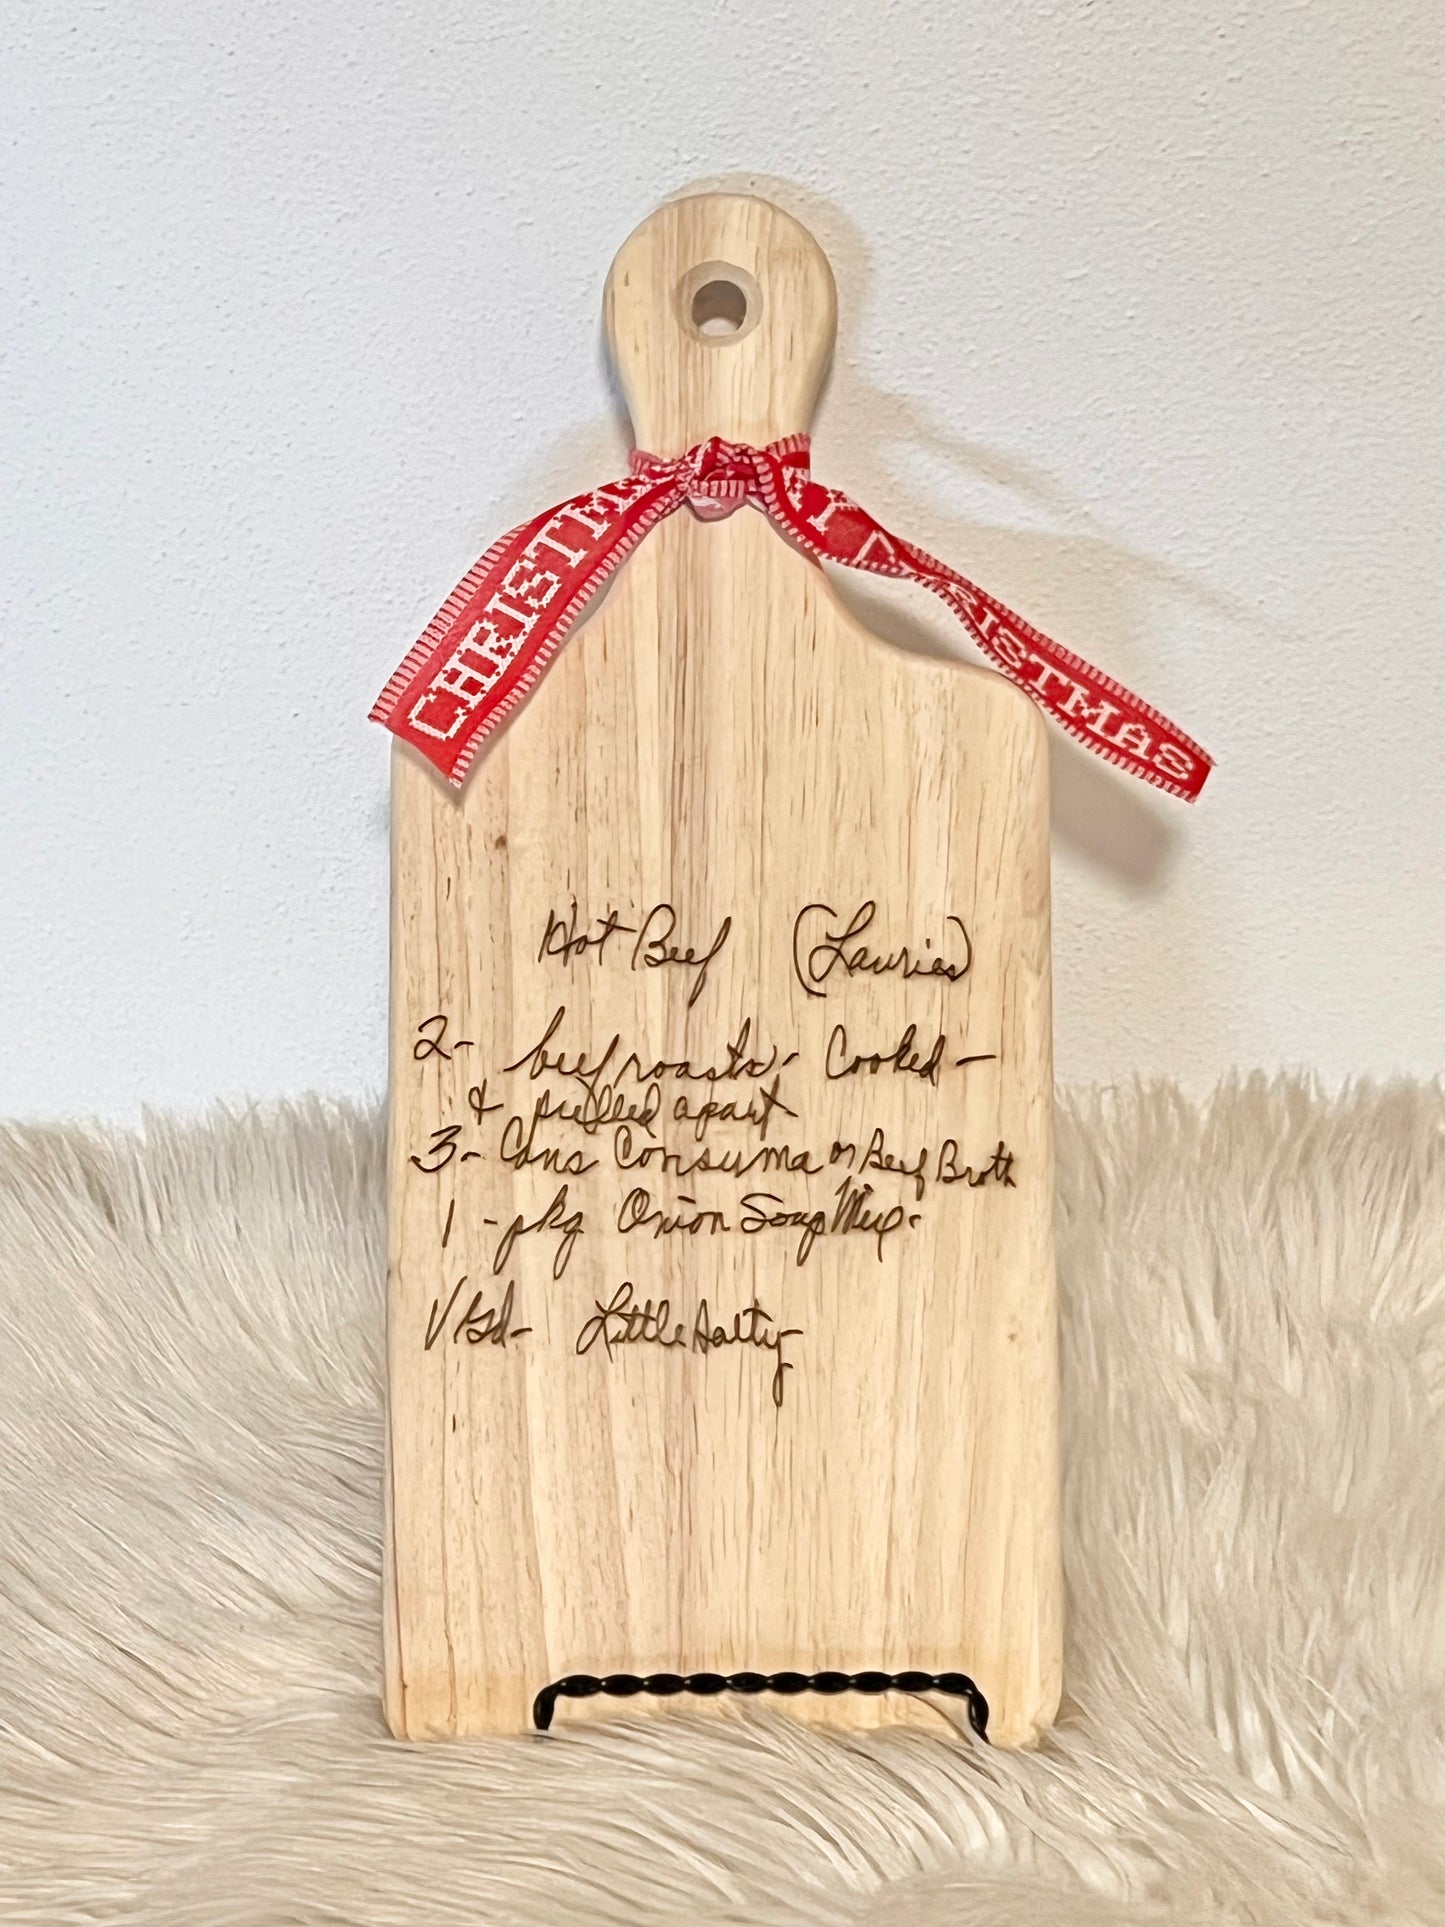 CHRISTM
Y CHRISTMAS
Hot Beef (Lauries)
2- beef roasts - Cooked -
& pulled apart
3- Cans Consuma or Beef Broth
1 - pkg Onion Soup Mix.
Little Salty